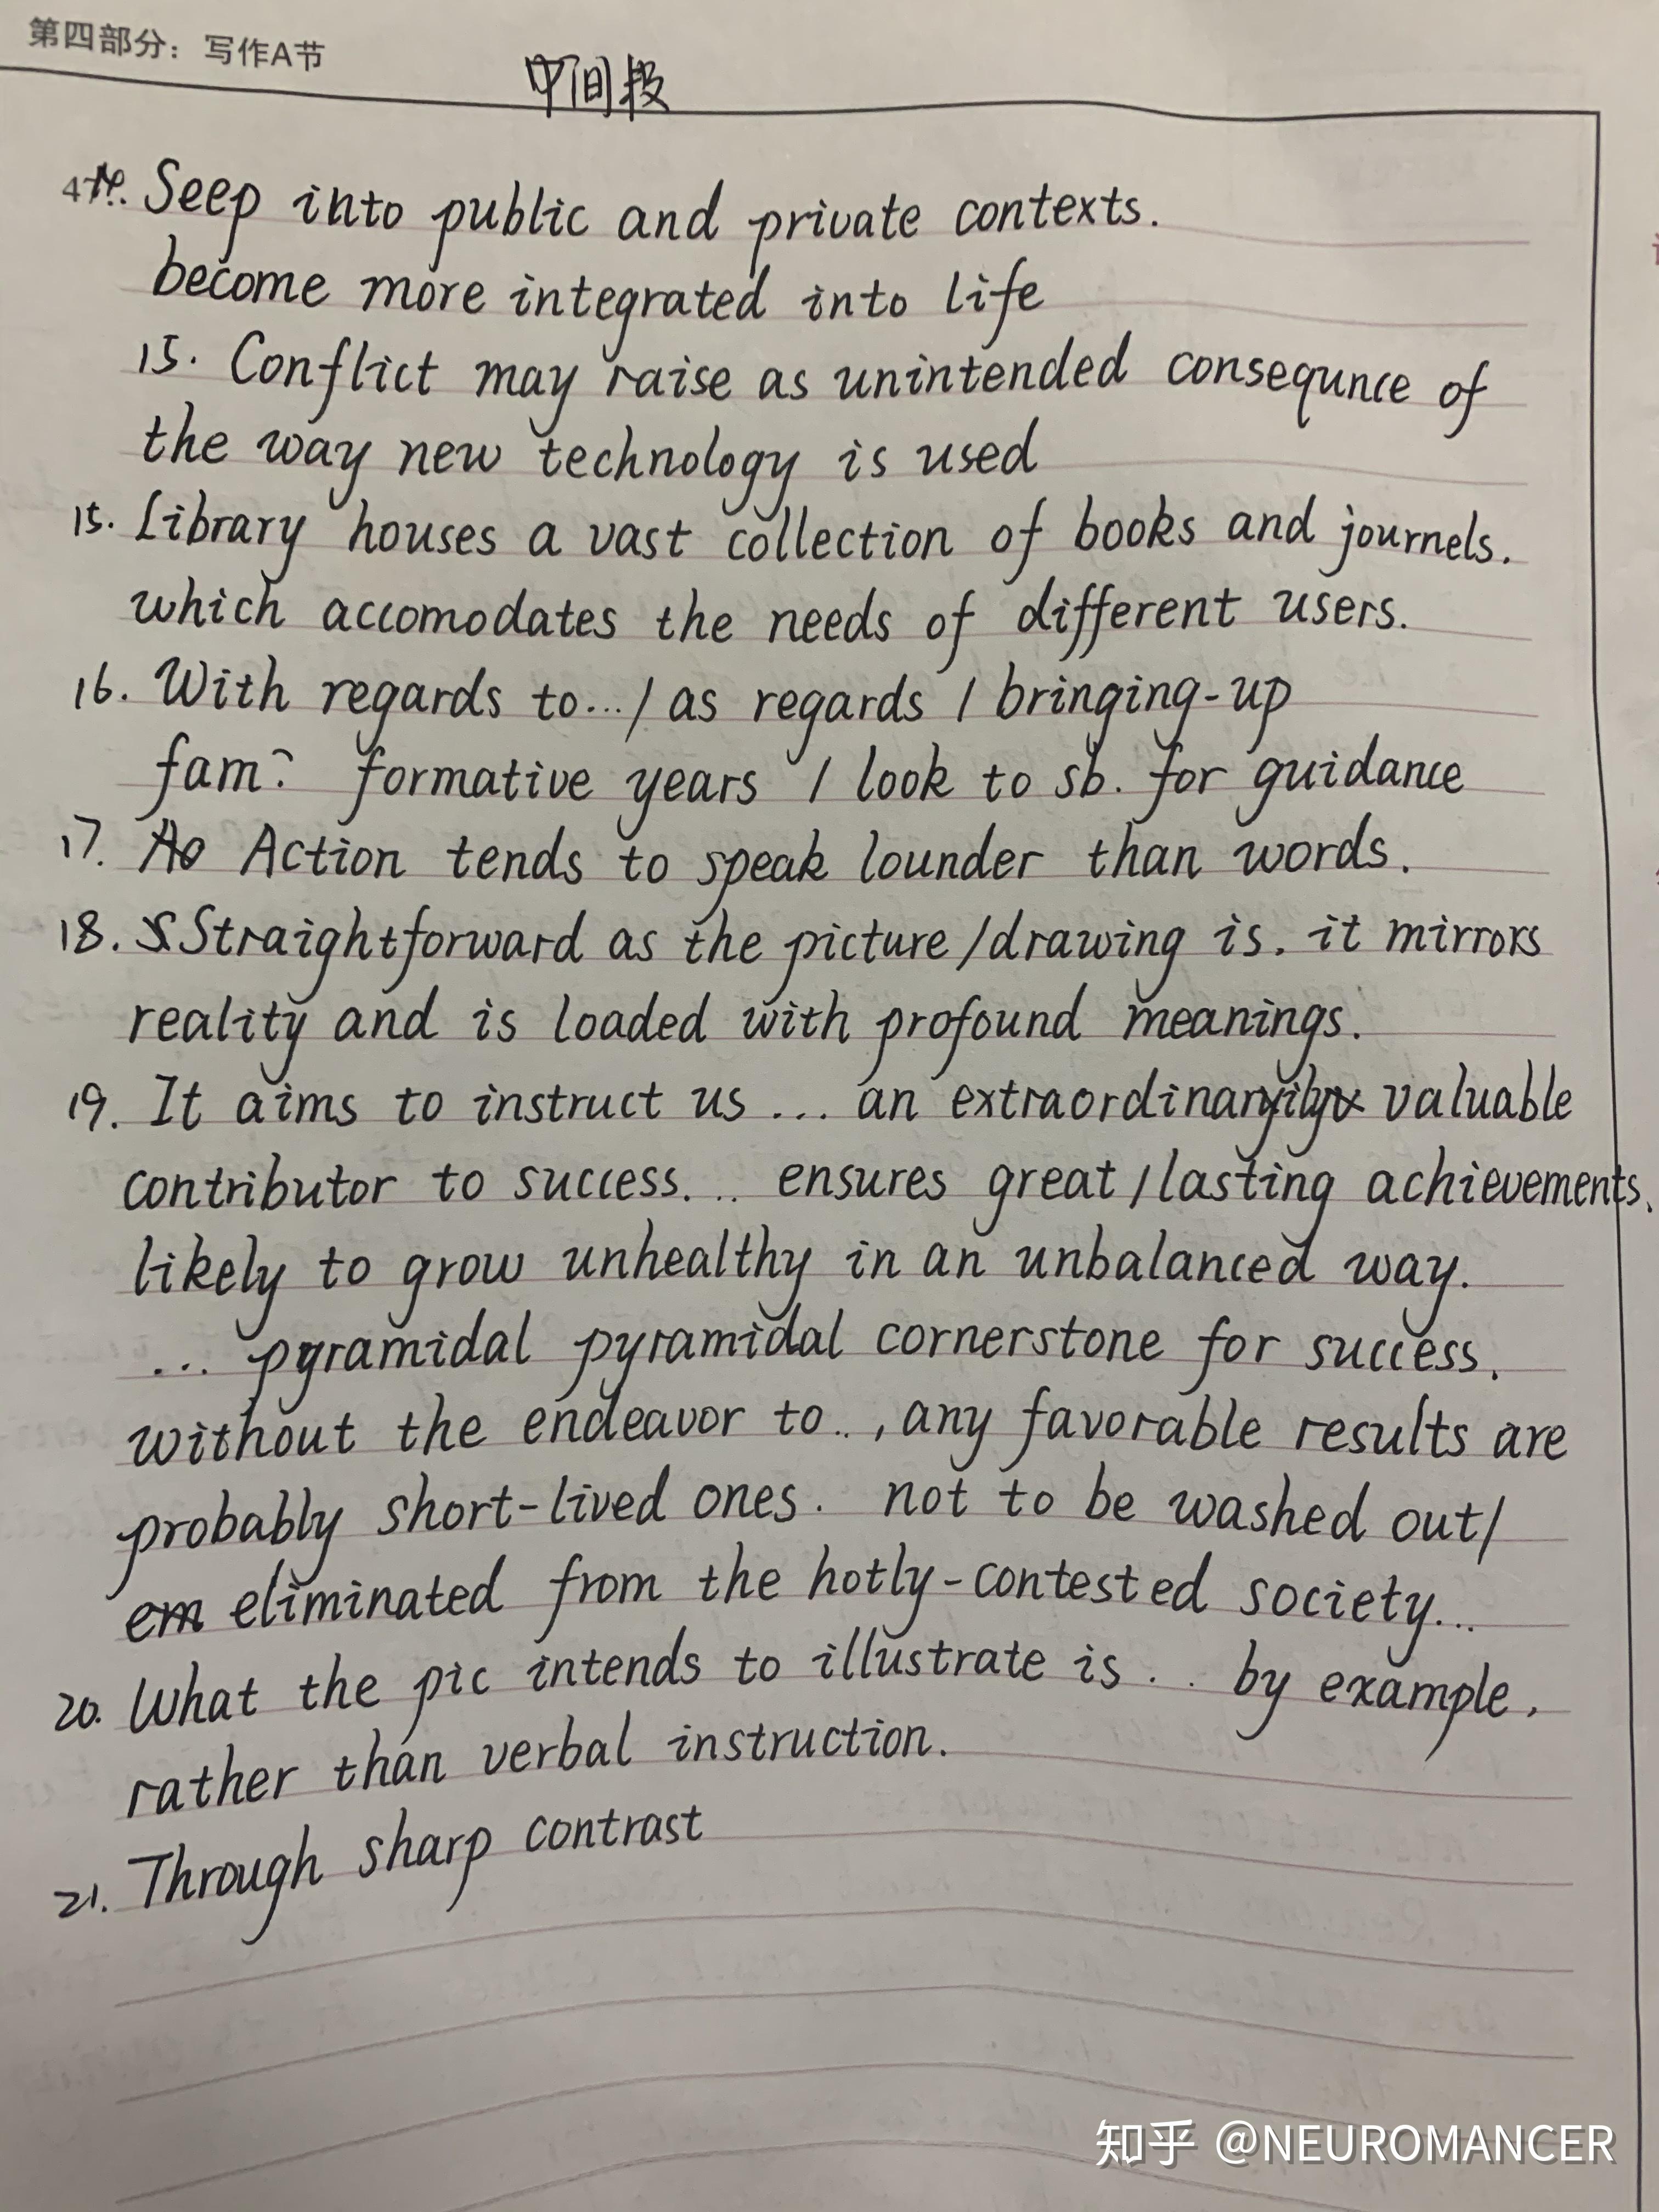 第四部分：写作A节
中间段
14. Seep into public and private contexts.
become more integrated into life
15. Conflict may raise as unintended consequnce of
the way new technology is used
15. Library houses a vast collection of books and journels.
which accomodates the needs of different users.
16. With regards to... / as regards / bringing-up
fam? formative years / look to sb. for guidance
17. Action tends to speak lounder than words.
18. Straightforward as the picture/drawing is. it mirrors
reality and is loaded with profound meanings.
19. It aims to instruct us ... an extraordinarily valuable
contributor to success. .. ensures great/lasting achievements.
likely to grow unhealthy in an unbalanced way.
... pyramidal pyramidal cornerstone for success.
without the endeavor to .. , any favorable results are
probably short-lived ones. not to be washed out/
em eliminated from the hotly-contested society...
20. What the pic intends to illustrate is . . by example,
rather than verbal instruction.
21. Through sharp contrast
知乎 @NEUROMANCER